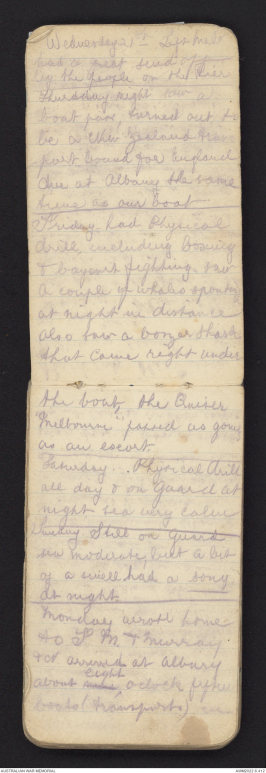 Wednesday 21st Left Melb
had a great send off
by the people on the Pier
Thursday night saw a
boat pass, turned out to
be a New Zealand tran
port bound for England
due at Albany the same
time as our boat
Friday had Physical
drill, including boxing
& bayonet fighting. Saw
a couple of whales spouting
at night in distance
also saw a bonzer shark
that came right under
the boat, the Cruiser
"Melbourne" passed us going
as an escort.
Saturday... Physical drill
all day & on Guard at
night sea very calm
Sunday Still on Guard
sea moderate, but a bit
of a swell had a song
at night.
Monday wrote home
to S. M. & Murray
&c arrived at Albany
about eight o'clock five
boats (transports)
AUSTRALIAN WAR MEMORIAL